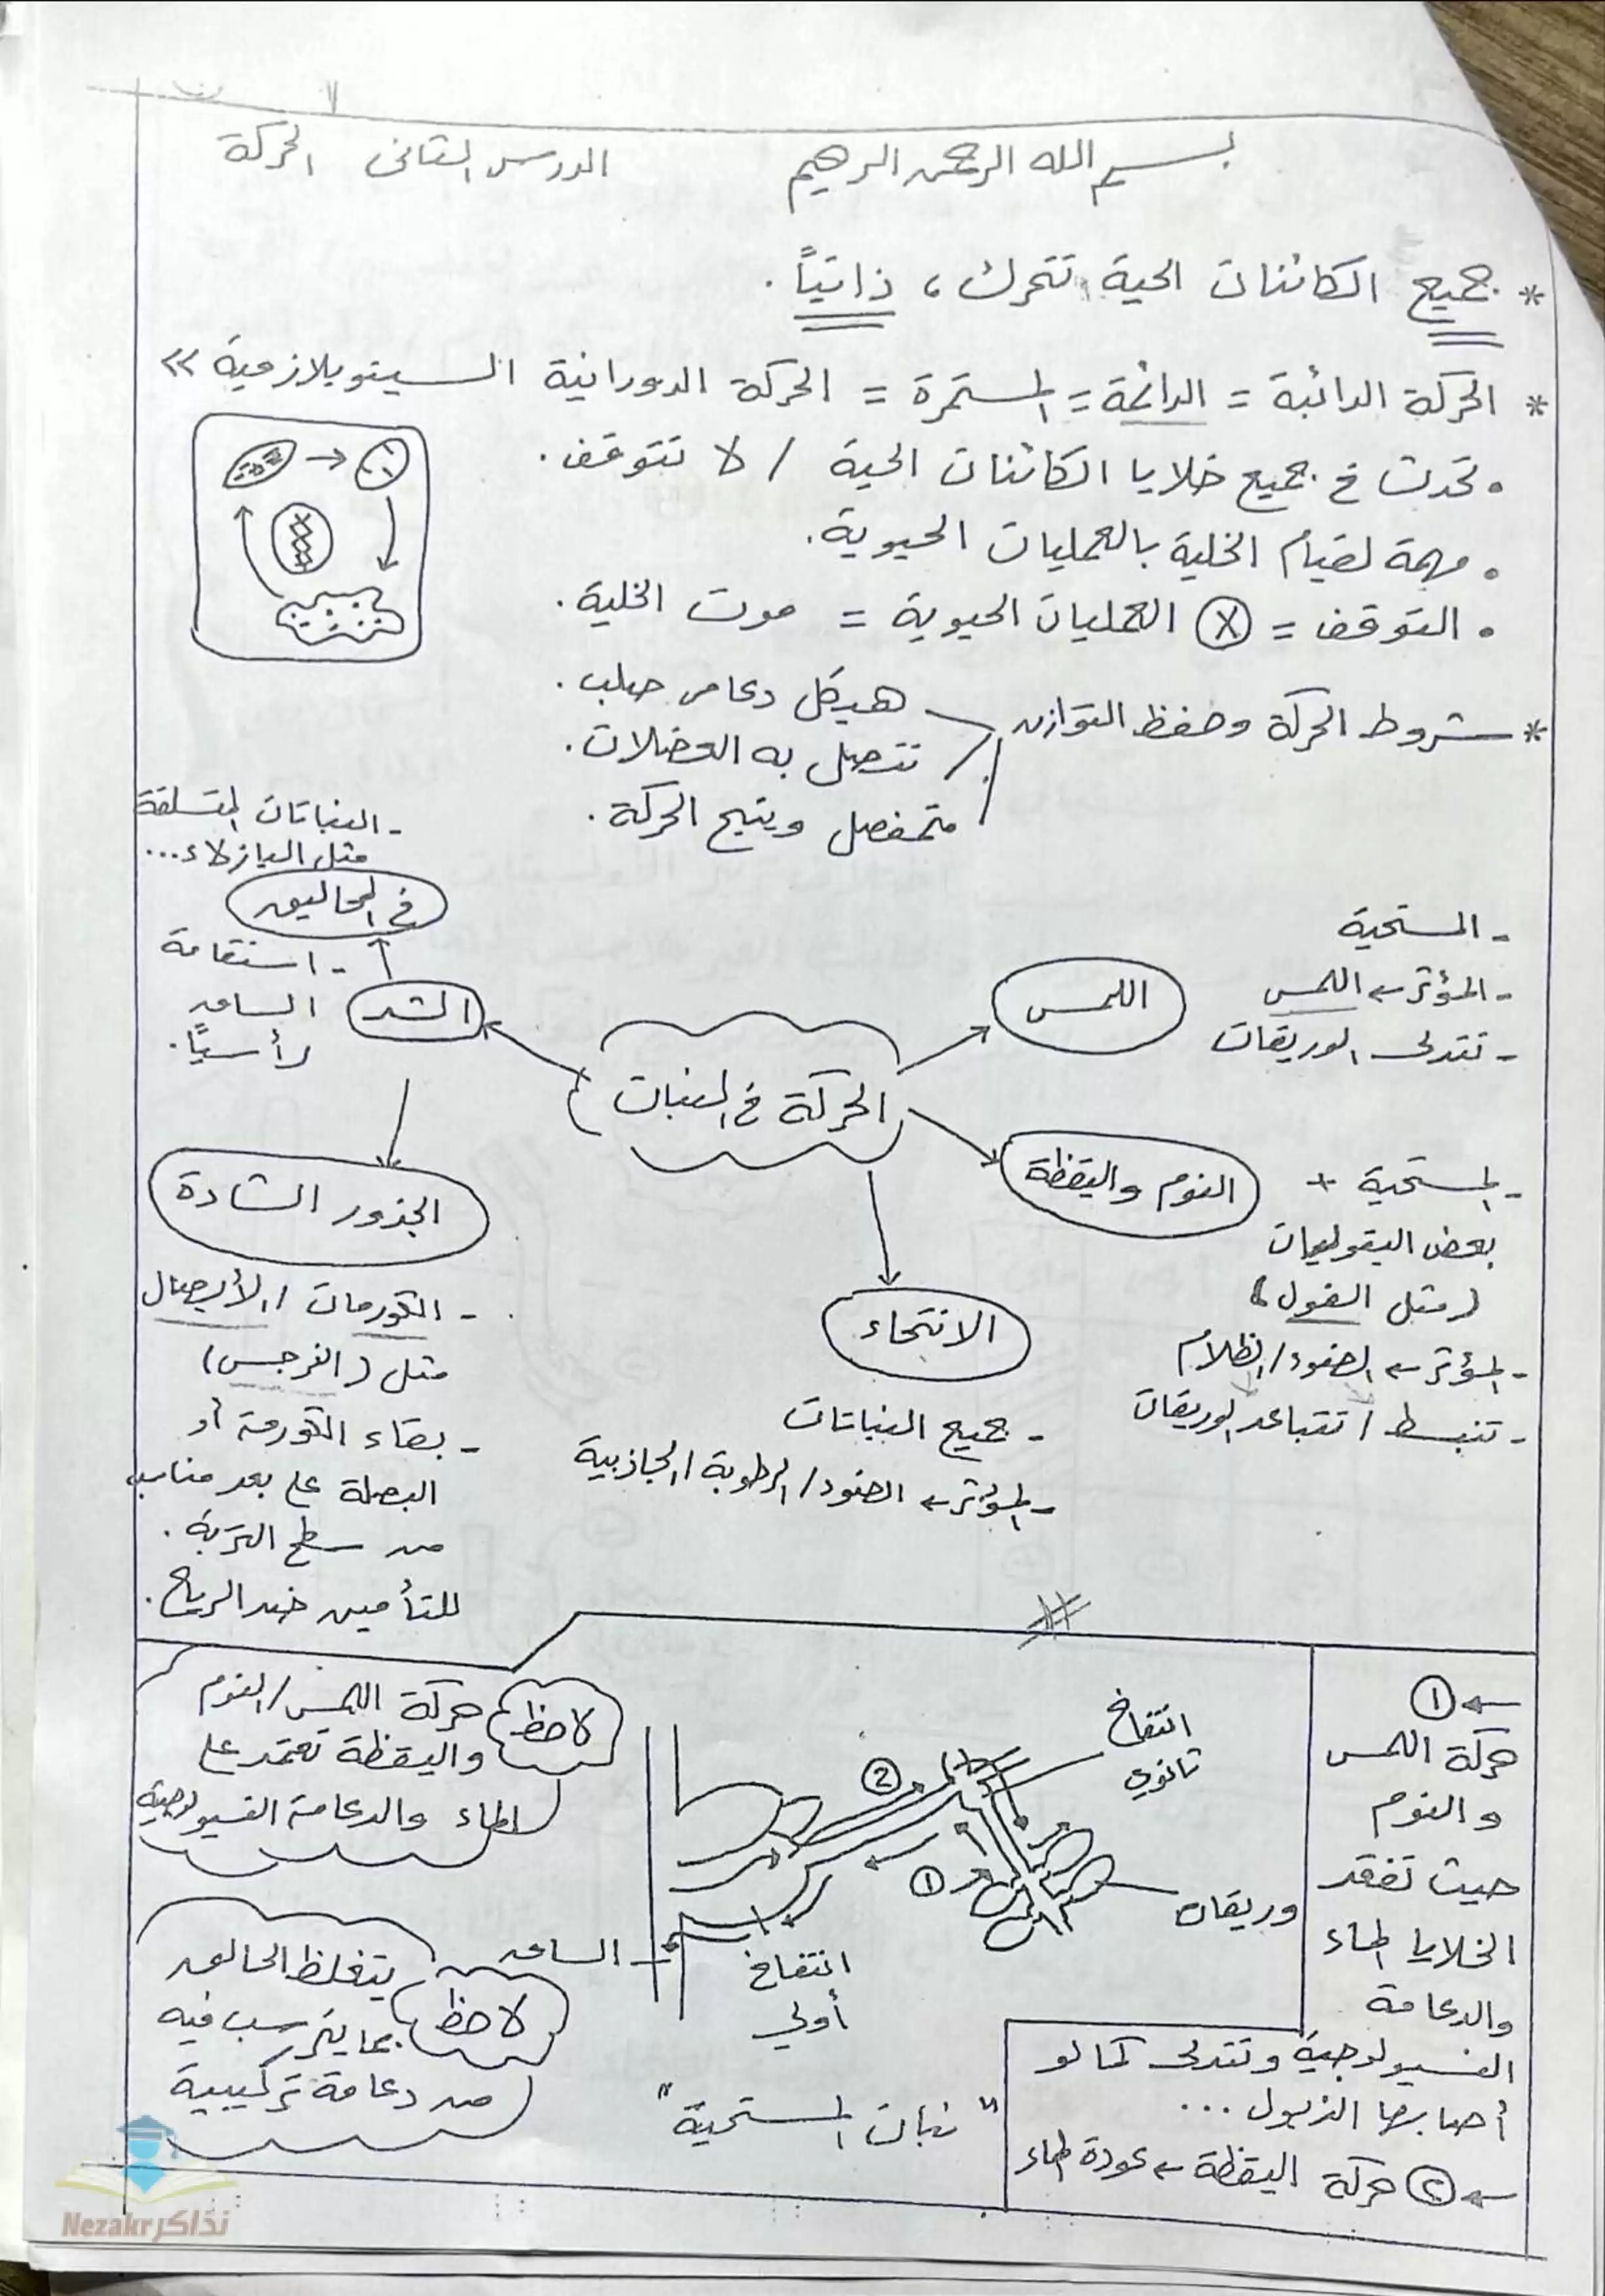 بسم الله الرحمن الرحيم
الدرس الثانى الحركة
* جميع الكائنات الحية تتحرك ، ذاتياً .
* الحركة الدائبة = الدائمة = المستمرة = الحركة الدورانية السيتوبلازمية >>
• تحدث في جميع خلايا الكائنات الحية / لا تتوقف .
• مهمة لقيام الخلية بالعمليات الحيوية .
• التوقف = X العمليات الحيوية = موت الخلية .
* شروط الحركة وحفظ التوازن
هيكل دعامى صلب .
تتصل به العضلات .
متمفصل ويتيح الحركة .
الحركة في النبات
اللمس
- المستحية
- المؤثر ← اللمس
- تتدلى الوريقات
النوم واليقظة
- المستحية +
بعض البقوليات
(مثل الفول)
- المؤثر ← الضوء / الظلام
- تنبسط / تتباعد الوريقات
الانتحاء
- جميع النباتات
- المؤثر ← الضوء / الرطوبة / الجاذبية
الشد
في المحاليق
- النباتات المتسلقة
مثل البازلاء ...
- استقامة
الساق
رأسيًا .
الجذور الشادة
- الكورمات / الأبصال
مثل (النرجس)
- بقاء الكورمة أو
البصلة على بعد مناسب
من سطح التربة .
للتأمين ضد الرياح .
← ①
حركة اللمس
والنوم
حيث تفقد
الخلايا الماء
والدعامة
الفسيولوجية وتتدلى كما لو
أصابها الذبول ...
← ② حركة اليقظة ← عودة الماء
انتفاخ
ثانوي
②
①
وريقات
انتفاخ
أولي
الساق
"نبات المستحية"
لاحظ
حركة اللمس / النوم
واليقظة تعتمد على
الماء والدعامة الفسيولوجية
لاحظ
يتغلظ الحالق
بما يترسب فيه
من دعامة تركيبية
Nezakr نذاكر